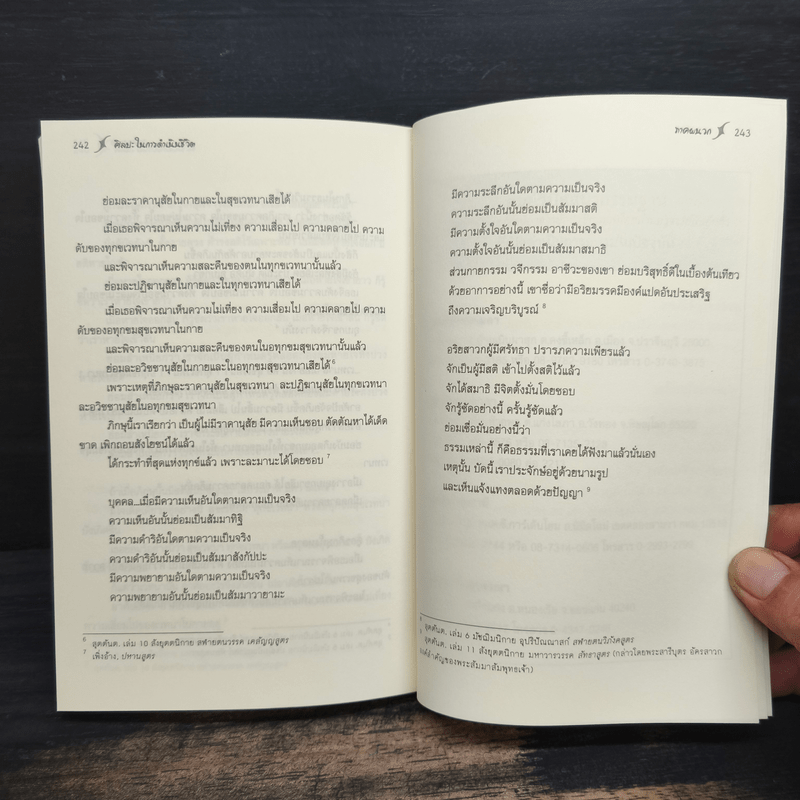 242 ศิลปะในการดำเนินชีวิต
ย่อมละราคานุสัยในกายและในสุขเวทนาเสียได้
เมื่อเธอพิจารณาเห็นความไม่เที่ยง ความเสื่อมไป ความคลายไป ความ
ดับของทุกขเวทนาในกาย
และพิจารณาเห็นความสละคืนของตนในทุกขเวทนานั้นแล้ว
ย่อมละปฏิฆานุสัยในกายและในทุกขเวทนาเสียได้
เมื่อเธอพิจารณาเห็นความไม่เที่ยง ความเสื่อมไป ความคลายไป ความ
ดับของอทุกขมสุขเวทนาในกาย
และพิจารณาเห็นความสละคืนของตนในอทุกขมสุขเวทนานั้นแล้ว
ย่อมละอวิชชานุสัยในกายและในอทุกขมสุขเวทนาเสียได้ 6
เพราะเหตุที่ภิกษุละราคานุสัยในสุขเวทนา ละปฏิฆานุสัยในทุกขเวทนา
ละอวิชชานุสัยในอทุกขมสุขเวทนา
ภิกษุนี้เราเรียกว่า เป็นผู้ไม่มีราคานุสัย มีความเห็นชอบ ตัดตัณหาได้เด็ด
ขาด เพิกถอนสังโยชน์ได้แล้ว
ได้กระทำที่สุดแห่งทุกข์แล้ว เพราะละมานะได้โดยชอบ 7
บุคคล...เมื่อมีความเห็นอันใดตามความเป็นจริง
ความเห็นอันนั้นย่อมเป็นสัมมาทิฐิ
มีความดำริอันใดตามความเป็นจริง
ความดำริอันนั้นย่อมเป็นสัมมาสังกัปปะ
มีความพยายามอันใดตามความเป็นจริง
ความพยายามอันนั้นย่อมเป็นสัมมาวายามะ
6 สุตตันต. เล่ม 10 สังยุตตนิกาย สฬายตนวรรค เคลัญญสูตร
7 เพิ่งอ้าง, ปหานสูตร
ภาคผนวก 243
มีความระลึกอันใดตามความเป็นจริง
ความระลึกอันนั้นย่อมเป็นสัมมาสติ
มีความตั้งใจอันใดตามความเป็นจริง
ความตั้งใจอันนั้นย่อมเป็นสัมมาสมาธิ
ส่วนกายกรรม วจีกรรม อาชีวะของเขา ย่อมบริสุทธิ์ดีในเบื้องต้นเทียว
ด้วยอาการอย่างนี้ เขาชื่อว่ามีอริยมรรคมีองค์แปดอันประเสริฐ
ถึงความเจริญบริบูรณ์ 8
อริยสาวกผู้มีศรัทธา ปรารภความเพียรแล้ว
จักเป็นผู้มีสติ เข้าไปตั้งสติไว้แล้ว
จักได้สมาธิ มีจิตตั้งมั่นโดยชอบ
จักรู้ชัดอย่างนี้ ครั้นรู้ชัดแล้ว
ย่อมเชื่อมั่นอย่างนี้ว่า
ธรรมเหล่านี้ ก็คือธรรมที่เราเคยได้ฟังมาแล้วนั่นเอง
เหตุนั้น บัดนี้ เราประจักษ์อยู่ด้วยนามรูป
และเห็นแจ้งแทงตลอดด้วยปัญญา 9
สุตตันต. เล่ม 6 มัชฌิมนิกาย อุปริปัณณาสก์ สฬายตนวิภังคสูตร
สุตตันต. เล่ม 11 สังยุตตนิกาย มหาวารวรรค สัทธาสูตร (กล่าวโดยพระสารีบุตร อัครสาวก
องค์สำคัญของพระสัมมาสัมพุทธเจ้า)